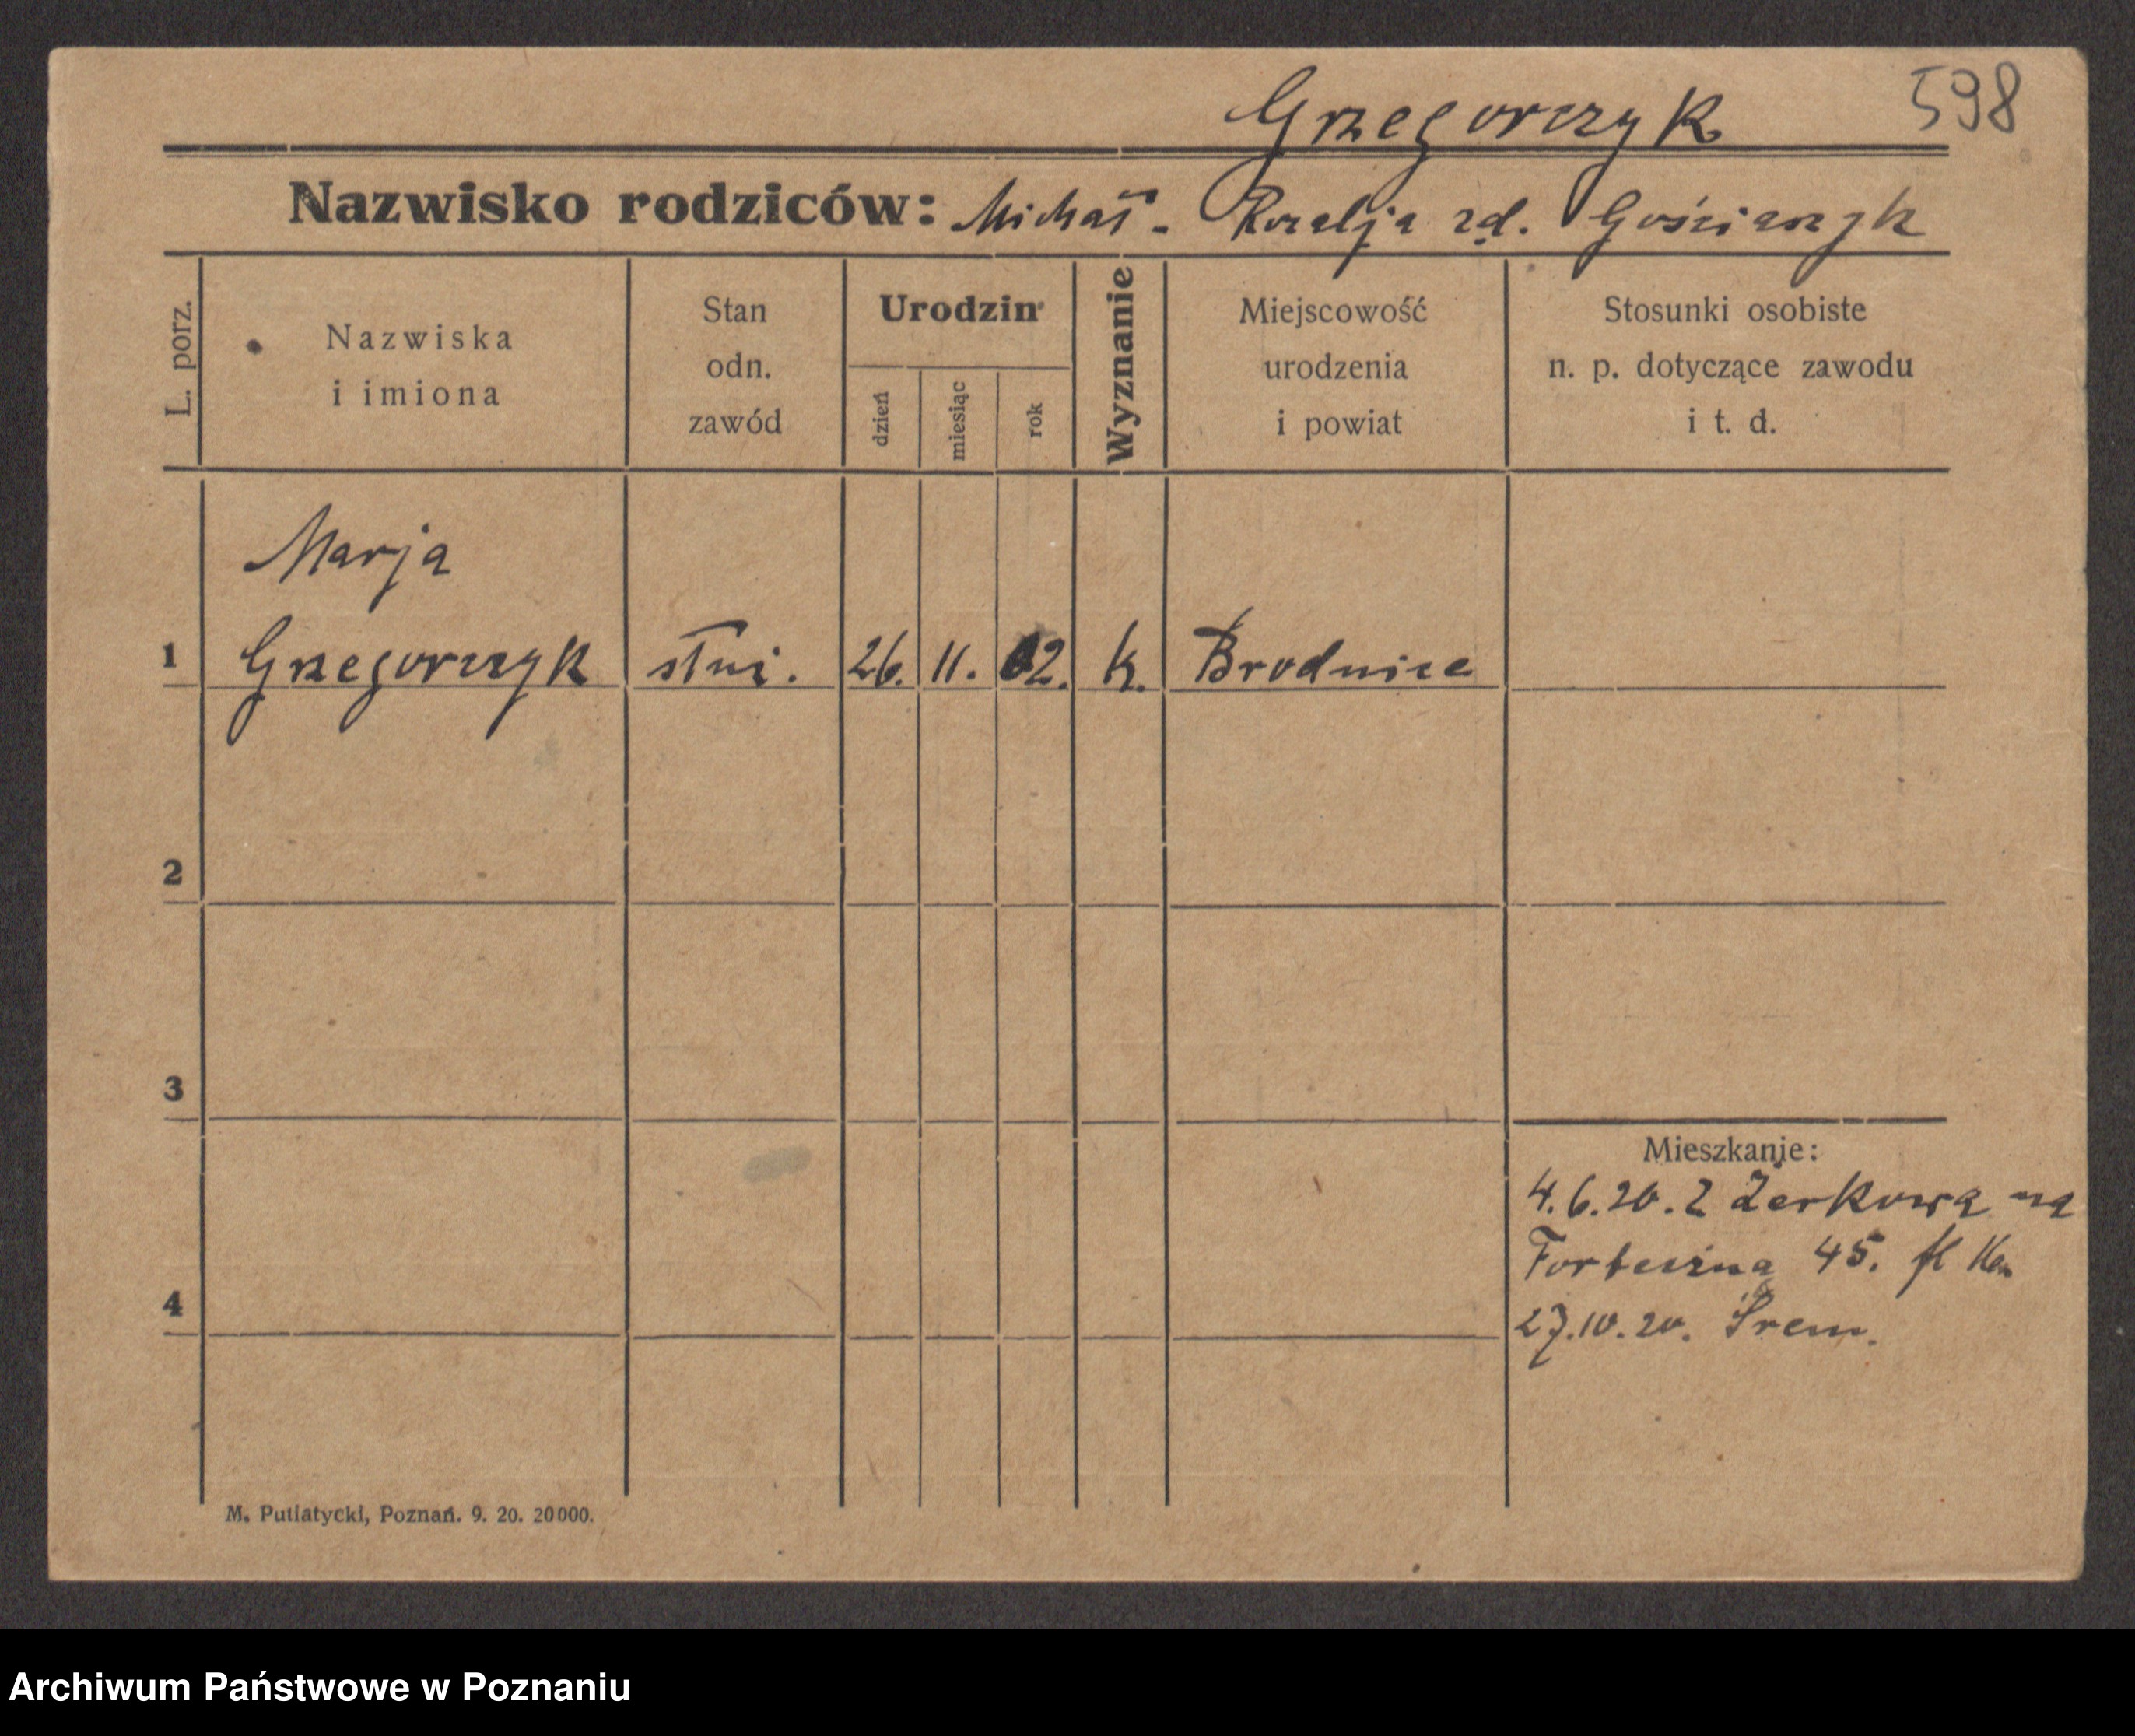 Grzegorczyk 598
Nazwisko rodziców: Michał - Rozalja zd. Gościańczyk
L. porz.
Nazwiska
i imiona
Stan
odn.
zawód
Urodzin
dzień
miesiąc
rok
Wyznanie
Miejscowość
urodzenia
i powiat
Stosunki osobiste
n. p. dotyczące zawodu
i t. d.
Marja
1 Grzegorczyk służ. 26. 11. 02. k. Brodnica
2
3
Mieszkanie:
4.6.20. z Żerkowa na
Forteczna 45.
4
27.10.20. Śrem.
M. Putiatycki, Poznań. 9. 20. 20000.
Archiwum Państwowe w Poznaniu